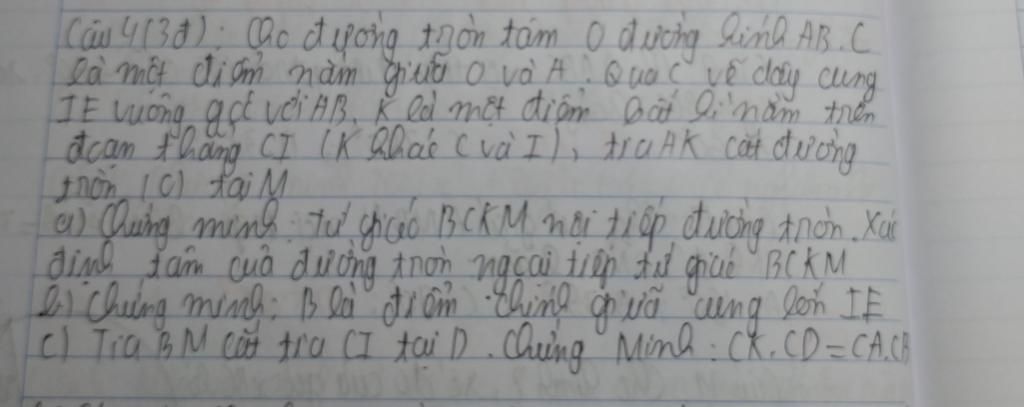 Câu 4(3đ): Cho đường tròn tâm O đường kính AB. C
là một điểm nằm giữa O và A. Qua C vẽ dây cung
IE vuông góc với AB. K là một điểm bất kì nằm trên
đoạn thẳng CI (K khác C và I), tia AK cắt đường
tròn (O) tại M
a) Chứng minh: tứ giác BCKM nội tiếp đường tròn. Xác
định tâm của đường tròn ngoại tiếp tứ giác BCKM
b) Chứng minh: B là điểm chính giữa cung lớn IE
c) Tia BM cắt tia CI tại D. Chứng Minh: CK.CD=CA.CB